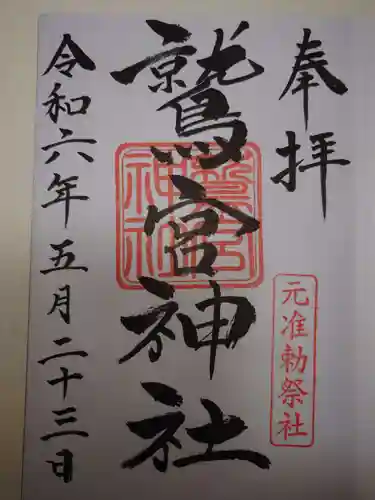 奉拝
元准勅祭社
鷲宮神社
鷲宮神社
令和六年五月二十三日